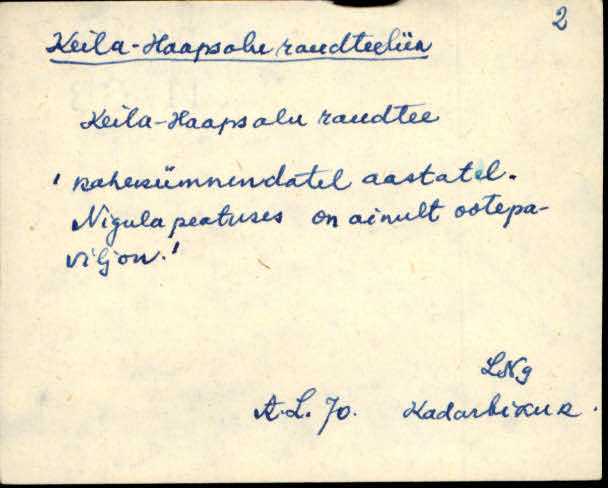 2
Keila-Haapsalu raudteeliin
Keila-Haapsalu raudtee
' kahekümnendatel aastatel.
Nigula peatuses on ainult ootepa-
viljon.'
LNg
A.L. 70. Kadarbiku k.